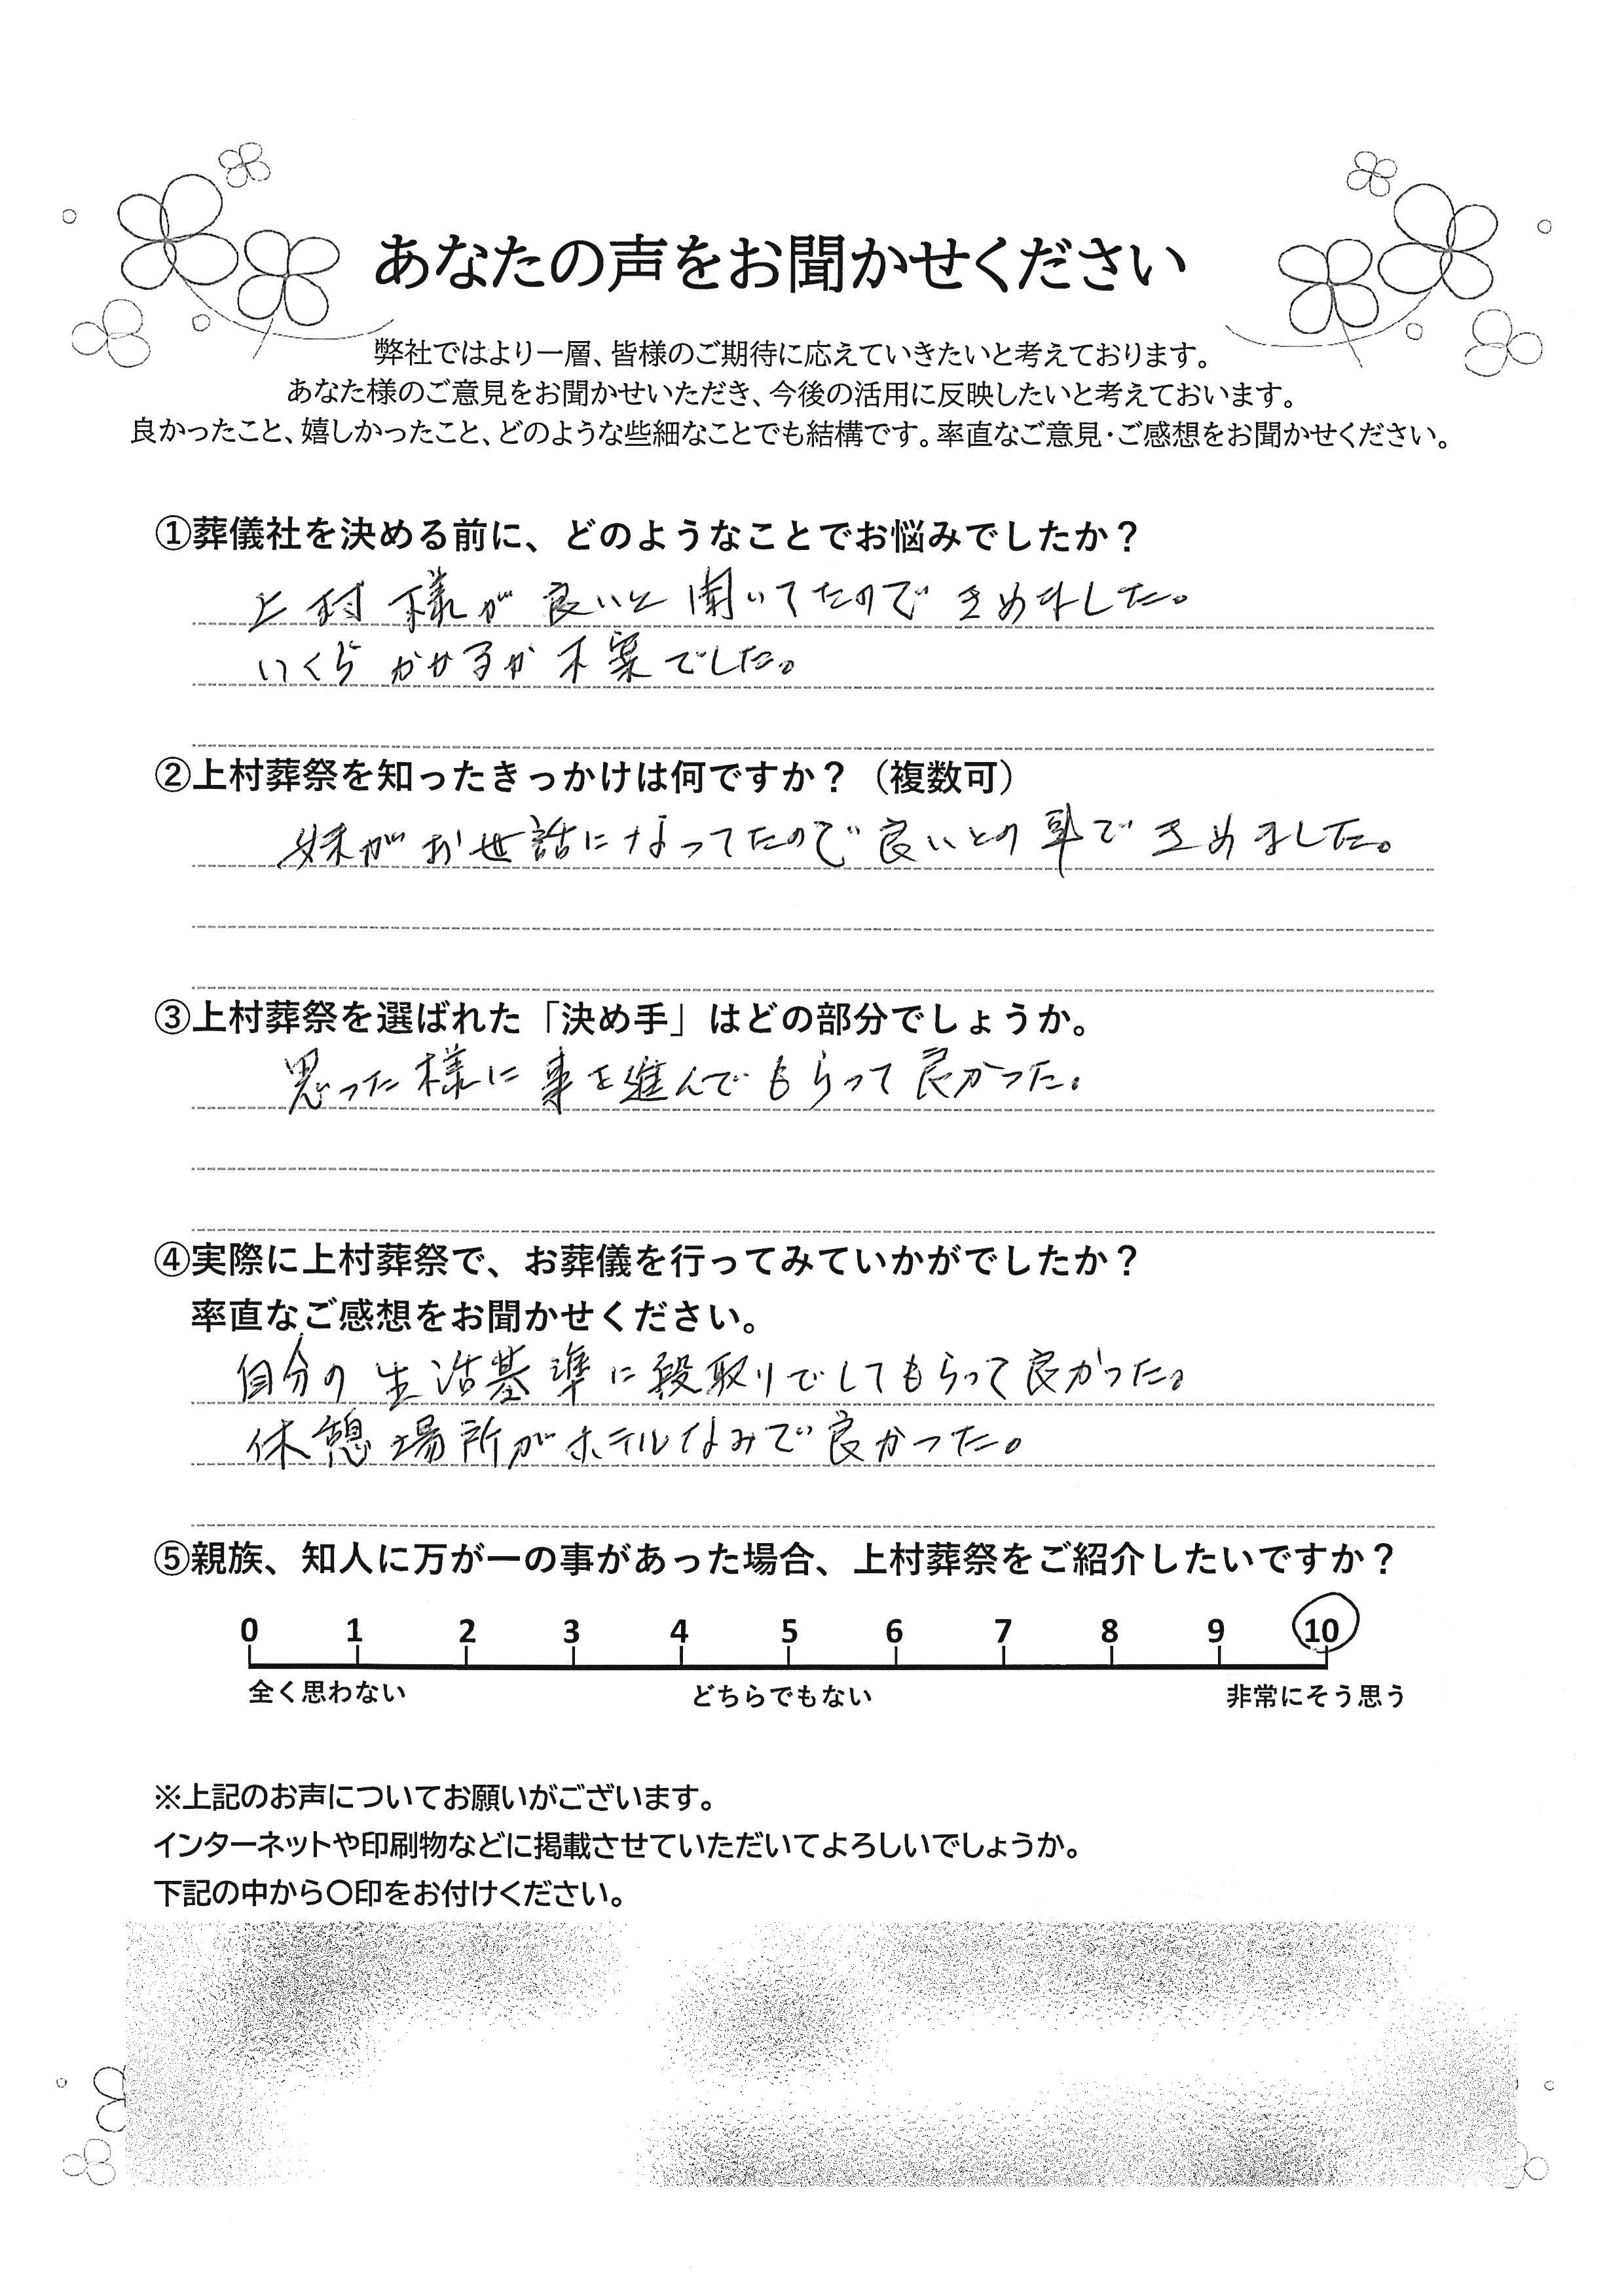 あなたの声をお聞かせください
弊社ではより一層、皆様のご期待に応えていきたいと考えております。
あなた様のご意見をお聞かせいただき、今後の活用に反映したいと考えておいます。
良かったこと、嬉しかったこと、どのような些細なことでも結構です。率直なご意見・ご感想をお聞かせください。
①葬儀社を決める前に、どのようなことでお悩みでしたか？
上村様が良いと聞いてたのできめました。
いくらかせるか不案でした。
②上村葬祭を知ったきっかけは何ですか？（複数可）
妹がお世話になってたので良いとの事できめました。
③上村葬祭を選ばれた「決め手」はどの部分でしょうか。
思った様に事を進んでもらって良かった。
④実際に上村葬祭で、お葬儀を行ってみていかがでしたか？
率直なご感想をお聞かせください。
自分の生活基準に段取りでしてもらって良かった。
休憩場所がホテルなみで良かった。
⑤親族、知人に万が一の事があった場合、上村葬祭をご紹介したいですか？
0 1 2 3 4 5 6 7 8 9 10
全く思わない どちらでもない 非常にそう思う
※上記のお声についてお願いがございます。
インターネットや印刷物などに掲載させていただいてよろしいでしょうか。
下記の中から〇印をお付けください。